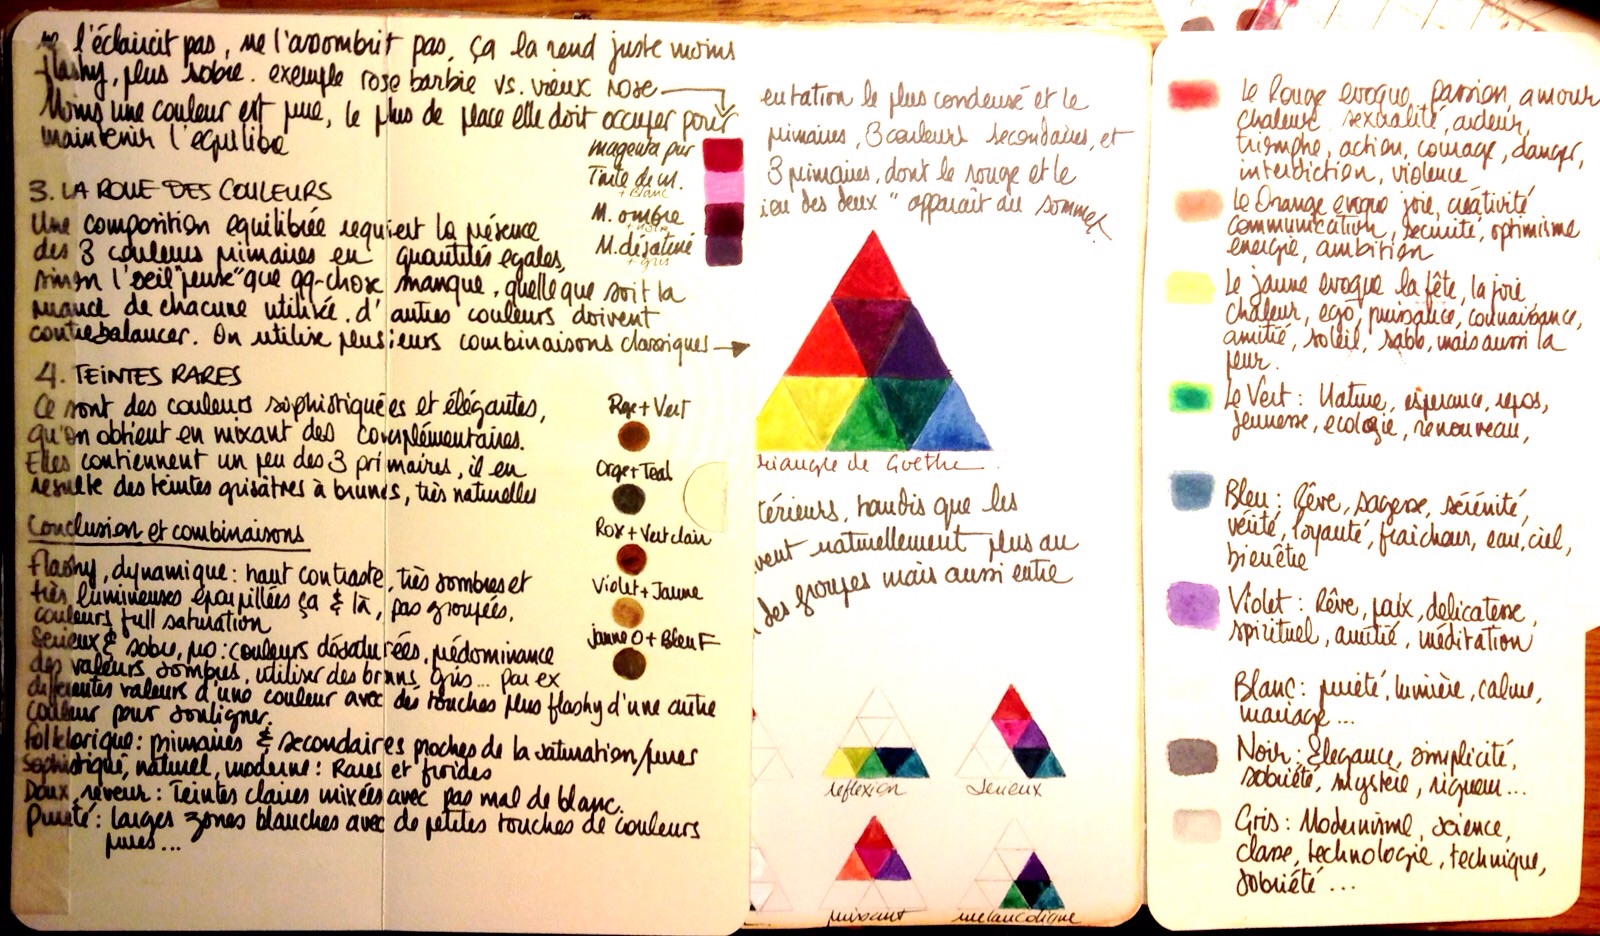 l'éclaircit pas, ne l'assombrit pas, ça la rend juste moins
flashy, plus sobre. exemple rose barbie vs. vieux rose
Moins une couleur est pure, le plus de place elle doit occuper pour
maintenir l'équilibre
magenta pur
Teinte de M.
+ Blanc
M. ombre
+ noir
M. désaturé
+ gris
3. LA ROUE DES COULEURS
Une composition équilibrée requiert la présence
des 3 couleurs primaires en quantités égales,
sinon l'oeil "pense" que qq-chose manque, quelle que soit la
nuance de chacune utilisée. d'autres couleurs doivent
contrebalancer. On utilise plusieurs combinaisons classiques
4. TEINTES RARES
Ce sont des couleurs sophistiquées et élégantes,
qu'on obtient en mixant des complémentaires.
Elles contiennent un peu des 3 primaires, il en
résulte des teintes grisâtres à brunes, très naturelles
Rge + Vert
Orge + Teal
Rose + Vert clair
Violet + Jaune
jaune O + Bleu F
Conclusion et combinaisons
Flashy, dynamique : haut contraste, très sombres et
très lumineuses éparpillées ça & là, pas groupées,
couleurs full saturation
Sérieux & sobre, pro : couleurs désaturées, prédominance
des valeurs sombres, utiliser des bruns, gris... par ex
différentes valeurs d'une couleur avec des touches plus flashy d'une autre
couleur pour souligner.
Folklorique : primaires & secondaires proches de la saturation/pures
Sophistiqué, naturel, moderne : Rares et froides
Doux, rêveur : Teintes claires mixées avec pas mal de blanc.
Pureté : larges zones blanches avec de petites touches de couleurs
pures...
entation le plus condensé et le
primaires, 3 couleurs secondaires, et
3 primaires, dont le rouge et le
ieu des deux" apparaît au sommet
riangle de Goethe
térieurs, tandis que les
vent naturellement plus au
des groupes mais aussi entre
réflexion
Sérieux
puissant
mélancolique
Le Rouge évoque passion, amour
chaleur, sexualité, ardeur,
triomphe, action, courage, danger,
interdiction, violence
Le Orange évoque joie, créativité
communication, sécurité, optimisme
énergie, ambition
Le jaune évoque la fête, la joie
chaleur, ego, puissance, connaissance,
amitié, soleil, sable, mais aussi la
peur.
Le Vert : Nature, espérance, repos,
Jeunesse, écologie, renouveau,
Bleu : Rêve, sagesse, sérénité,
vérité, loyauté, fraîcheur, eau, ciel,
bienêtre
Violet : Rêve, paix, délicatesse,
spirituel, amitié, méditation
Blanc : pureté, lumière, calme,
mariage...
Noir : Élégance, simplicité,
sobriété, mystère, rigueur...
Gris : Modernisme, science,
classe, technologie, technique,
sobriété...